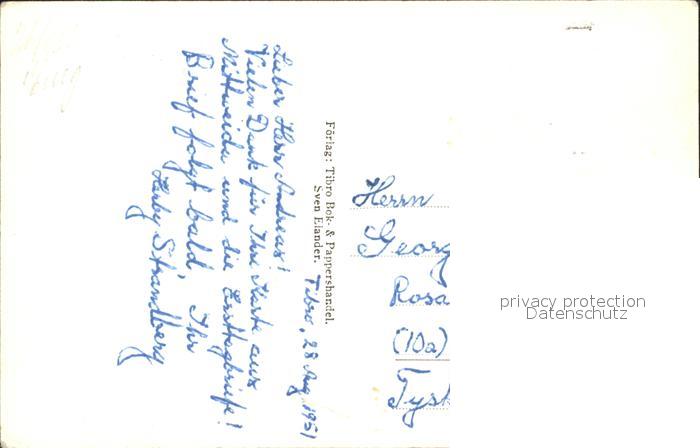 Tibro, 28 Aug. 1951
Lieber Herr Andreas!
Vielen Dank für Ihre Karte aus
Mittweida und die Ersttagbriefe!
Brief folgt bald, Ihr
Harby Strandberg
Förlag: Tibro Bok- & Pappershandel.
Sven Elander.
Herrn
Georg
Rosa
(10a)
Tysk
privacy protection
Datenschutz